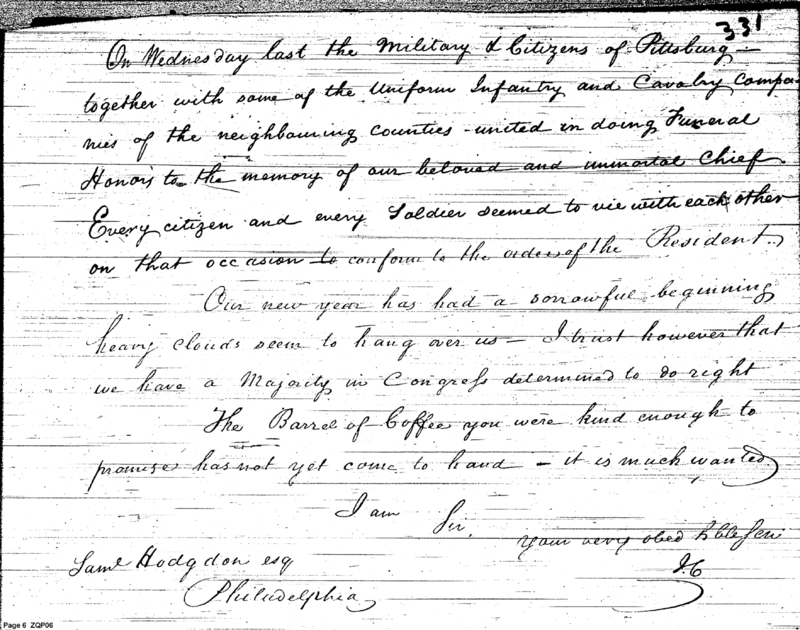 331
On Wednesday last the Military & Citizens of Pittsburg —
together with some of the Uniform Infantry and Cavalry Compa-
nies of the neighbouring counties - united in doing Funeral
Honors to the memory of our beloved and immortal Chief
Every citizen and every Soldier seemed to vie with each other
on that occasion to conform to the orders of the President.
Our new year has had a sorrowful beginning
heavy clouds seem to hang over us — I trust however that
we have a Majority in Congress determined to do right
The Barrel of Coffee you were kind enough to
promise has not yet come to hand — it is much wanted
I am Sir,
Your very obed hble Serv
J.C
Saml Hodgdon esq
Philadelphia
Page 6 ZQP06